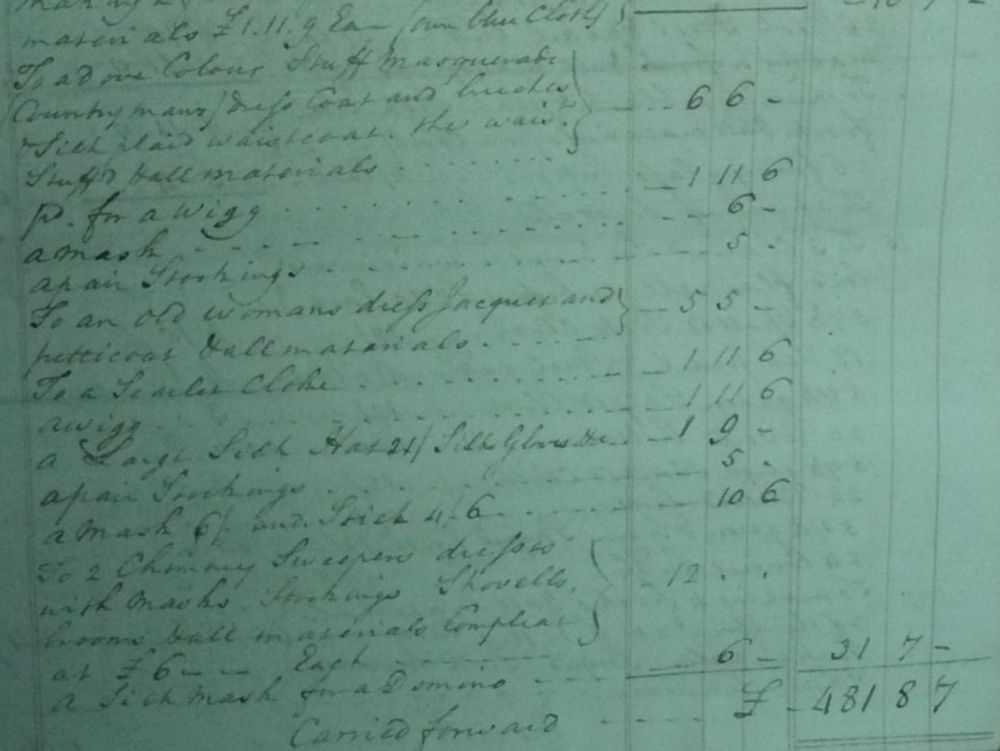 materials £1.11.9 Ea (own blue Cloth)
To a dove Colour Stuff Masquerade
(Countrymans) dress Coat and breeches 6 6 -
Silk plaid waistcoat. the waist.
Stuff'd &all materials 1 11 6
pd. for a wigg 6 -
a mask 5 -
a pair Stockings
To an old womans dress Jacquet and 5 5 -
petticoat &all materials
To a Scarlet Cloke 1 11 6
a wigg 1 11 6
a Large Silk Hat 21/ Silk Gloves &c. 1 9 -
a pair Stockings 5 -
a Mask 6/. and Stick 4/6 10 6
To 2 Chimney Sweepers dresses
with Masks Stockings Shovells, 12 . .
brooms &all materials Compleat
at £6 - - Each
a Silk Mask for a Domino 6 - 31 7 -
Carried forward £ 481 8 7